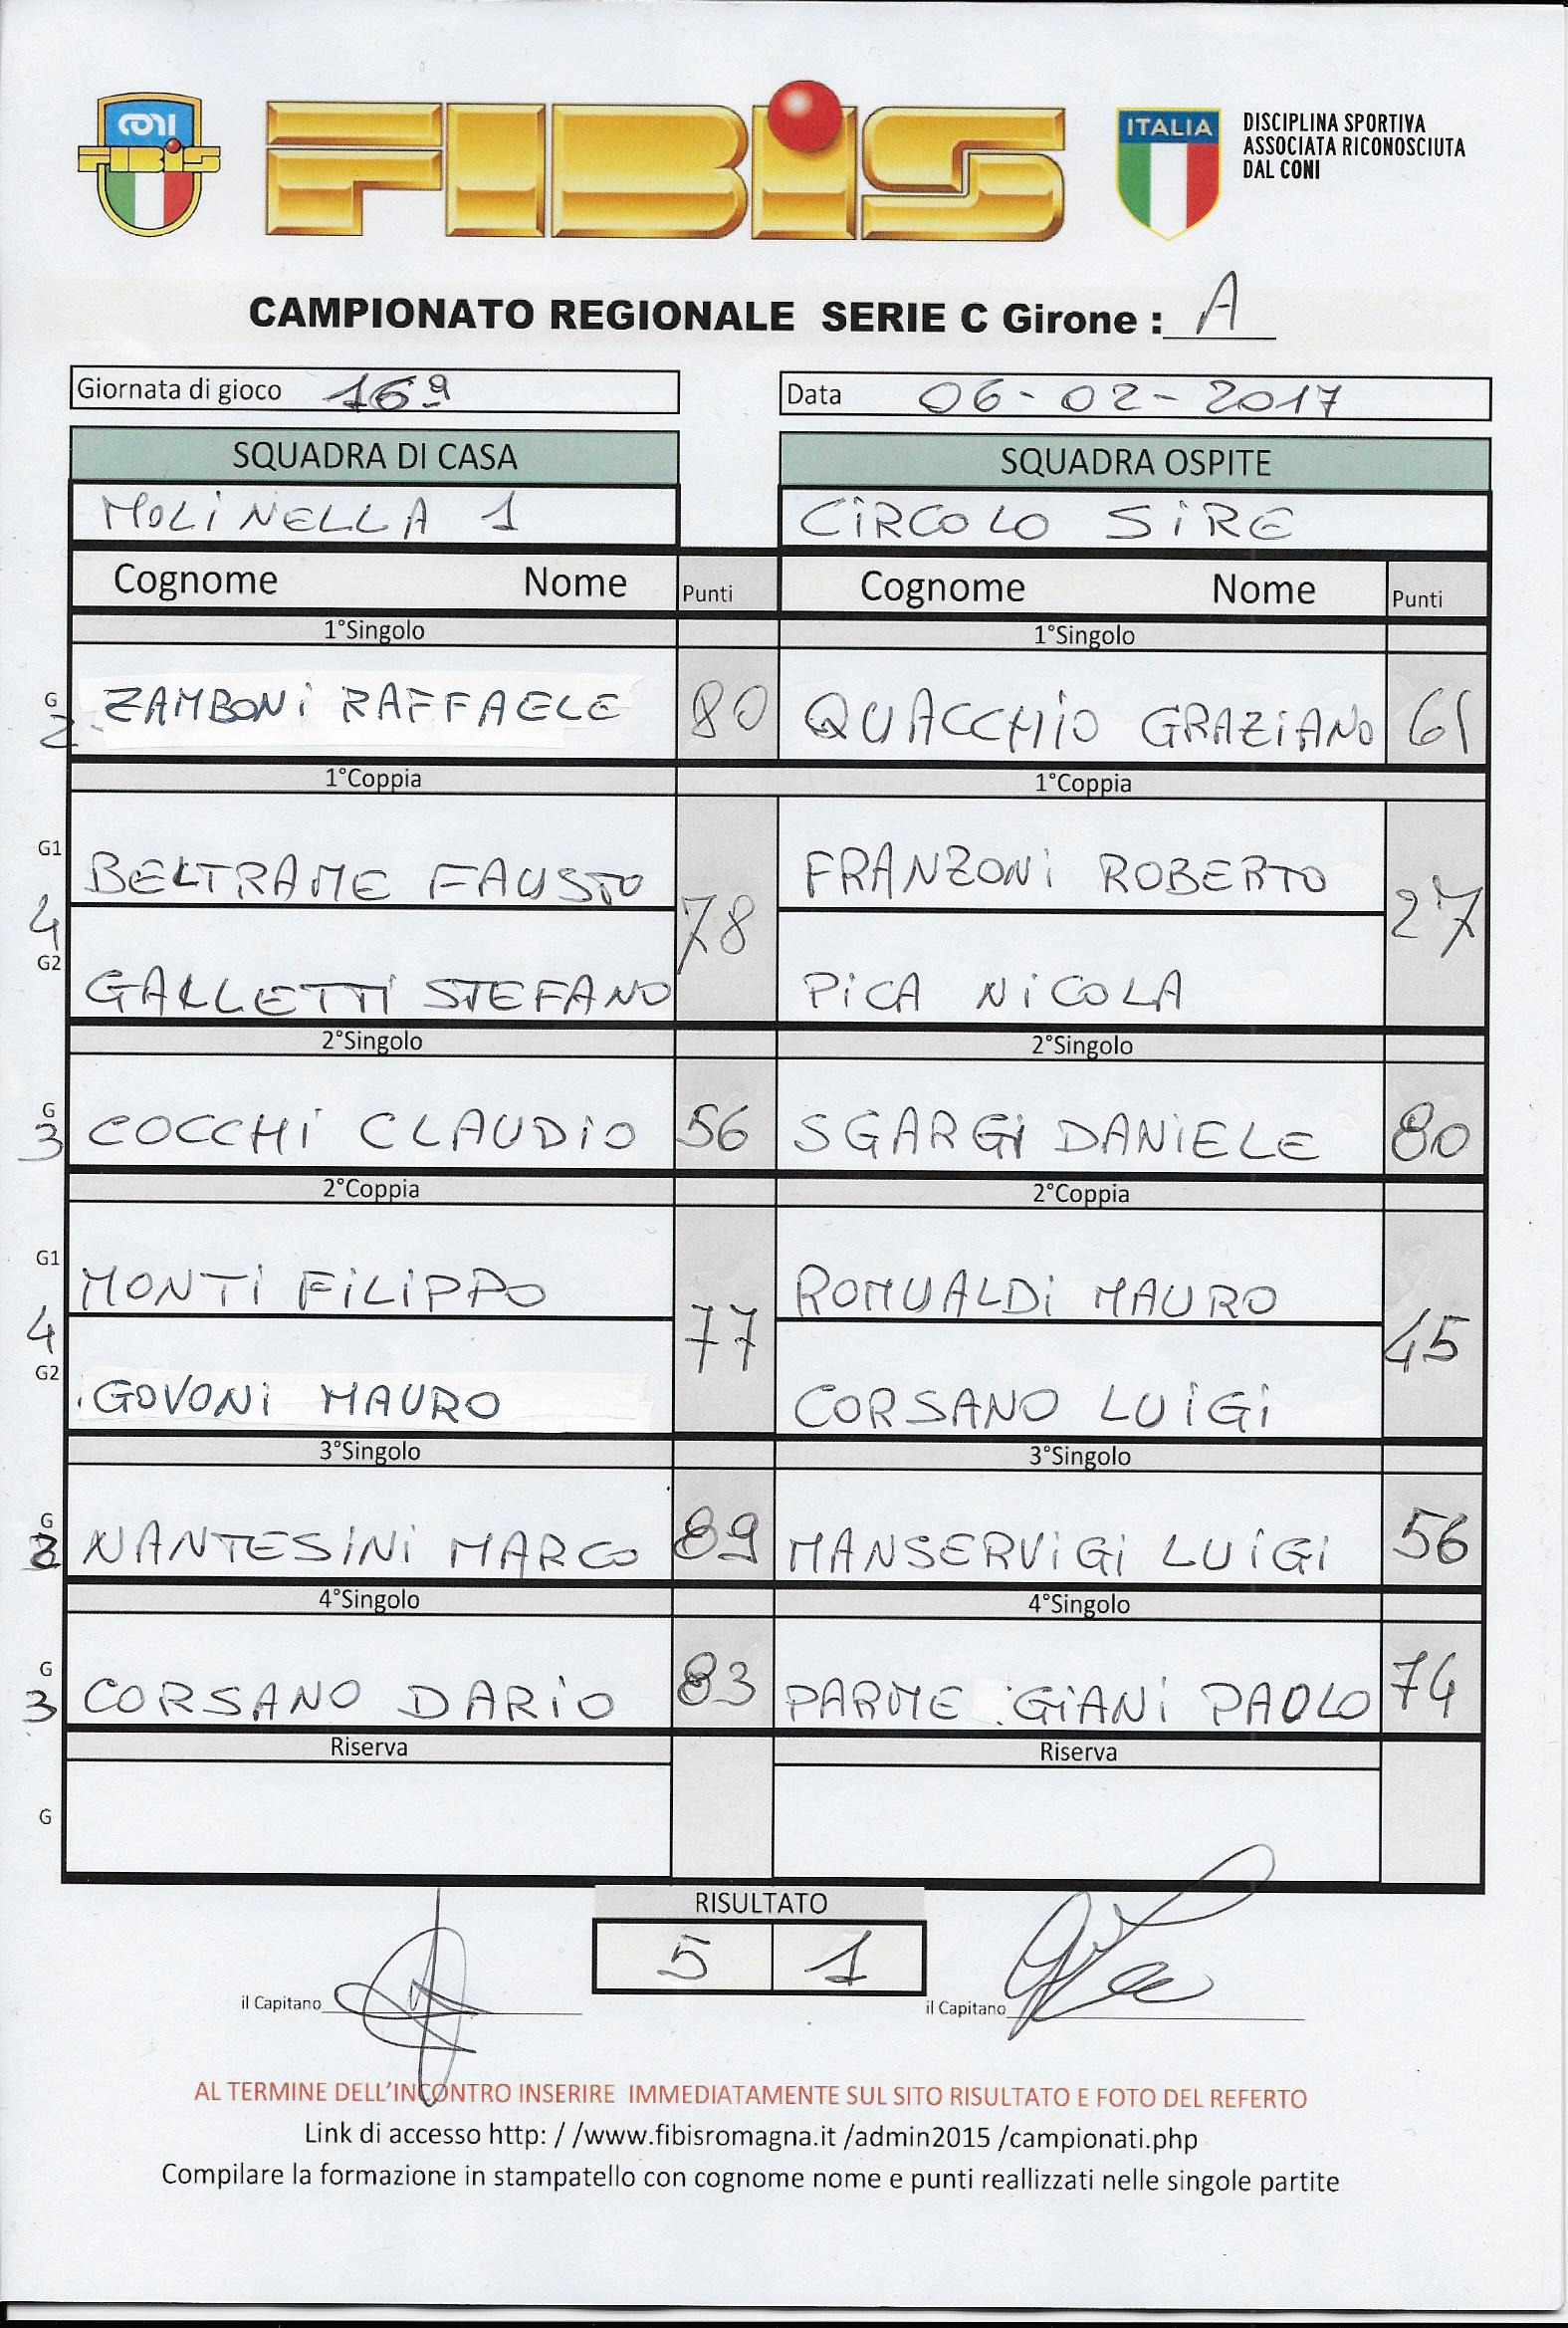 CONI
FIBIS
FIBIS
ITALIA
DISCIPLINA SPORTIVA
ASSOCIATA RICONOSCIUTA
DAL CONI
CAMPIONATO REGIONALE SERIE C Girone : A
Giornata di gioco 16ª
Data 06-02-2017
SQUADRA DI CASA SQUADRA OSPITE
MOLINELLA 1 CIRCOLO SIRE
Cognome Nome Punti Cognome Nome Punti
1°Singolo 1°Singolo
G
2 ZAMBONI RAFFAELE 80 QUACCHIO GRAZIANO 61
1°Coppia 1°Coppia
G1 BELTRAME FAUSTO FRANZONI ROBERTO
4 78 27
G2 GALLETTI STEFANO PICA NICOLA
2°Singolo 2°Singolo
G
3 COCCHI CLAUDIO 56 SGARGI DANIELE 80
2°Coppia 2°Coppia
G1 MONTI FILIPPO ROMUALDI MAURO
4 77 45
G2 GOVONI MAURO CORSANO LUIGI
3°Singolo 3°Singolo
G
NANTESINI MARCO 89 MANSERVIGI LUIGI 56
4°Singolo 4°Singolo
G
3 CORSANO DARIO 83 PARME GIANI PAOLO 74
Riserva Riserva
G
RISULTATO
5 1
il Capitano il Capitano
AL TERMINE DELL'INCONTRO INSERIRE IMMEDIATAMENTE SUL SITO RISULTATO E FOTO DEL REFERTO
Link di accesso http: / /www.fibisromagna.it /admin2015 /campionati.php
Compilare la formazione in stampatello con cognome nome e punti reallizzati nelle singole partite